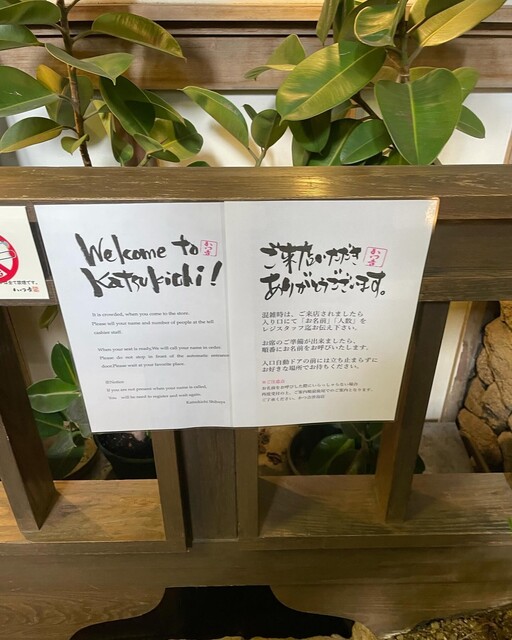 Welcome to
Katsukichi!
It is crowded, when you come to the store.
Please tell your name and number of people at the tell
cashier staff.
When your seat is ready,We will call your name to order.
Please do not stop in front of the automatic entrance
door,Please wait at your favorite place.
※Notice.
If you are not present when your name is called,
You will be need to register and wait again.
Katsukichi Shibuya
かつ吉
ご来店いただき
ありがとうございます。
かつ吉
混雑時は、ご来店されましたら
入り口にて「お名前」「人数」を
レジスタッフ迄お伝え下さい。
お席のご準備が出来ましたら、
順番にお名前をお呼びいたします。
入口自動ドアの前には立ち止まらずに
お好きな場所でお待ちください。
※ご注意点
お名前をお呼びした際にいらっしゃらない場合、
ご了承ください。かつ吉渋谷店
全て禁煙です。
かつ吉